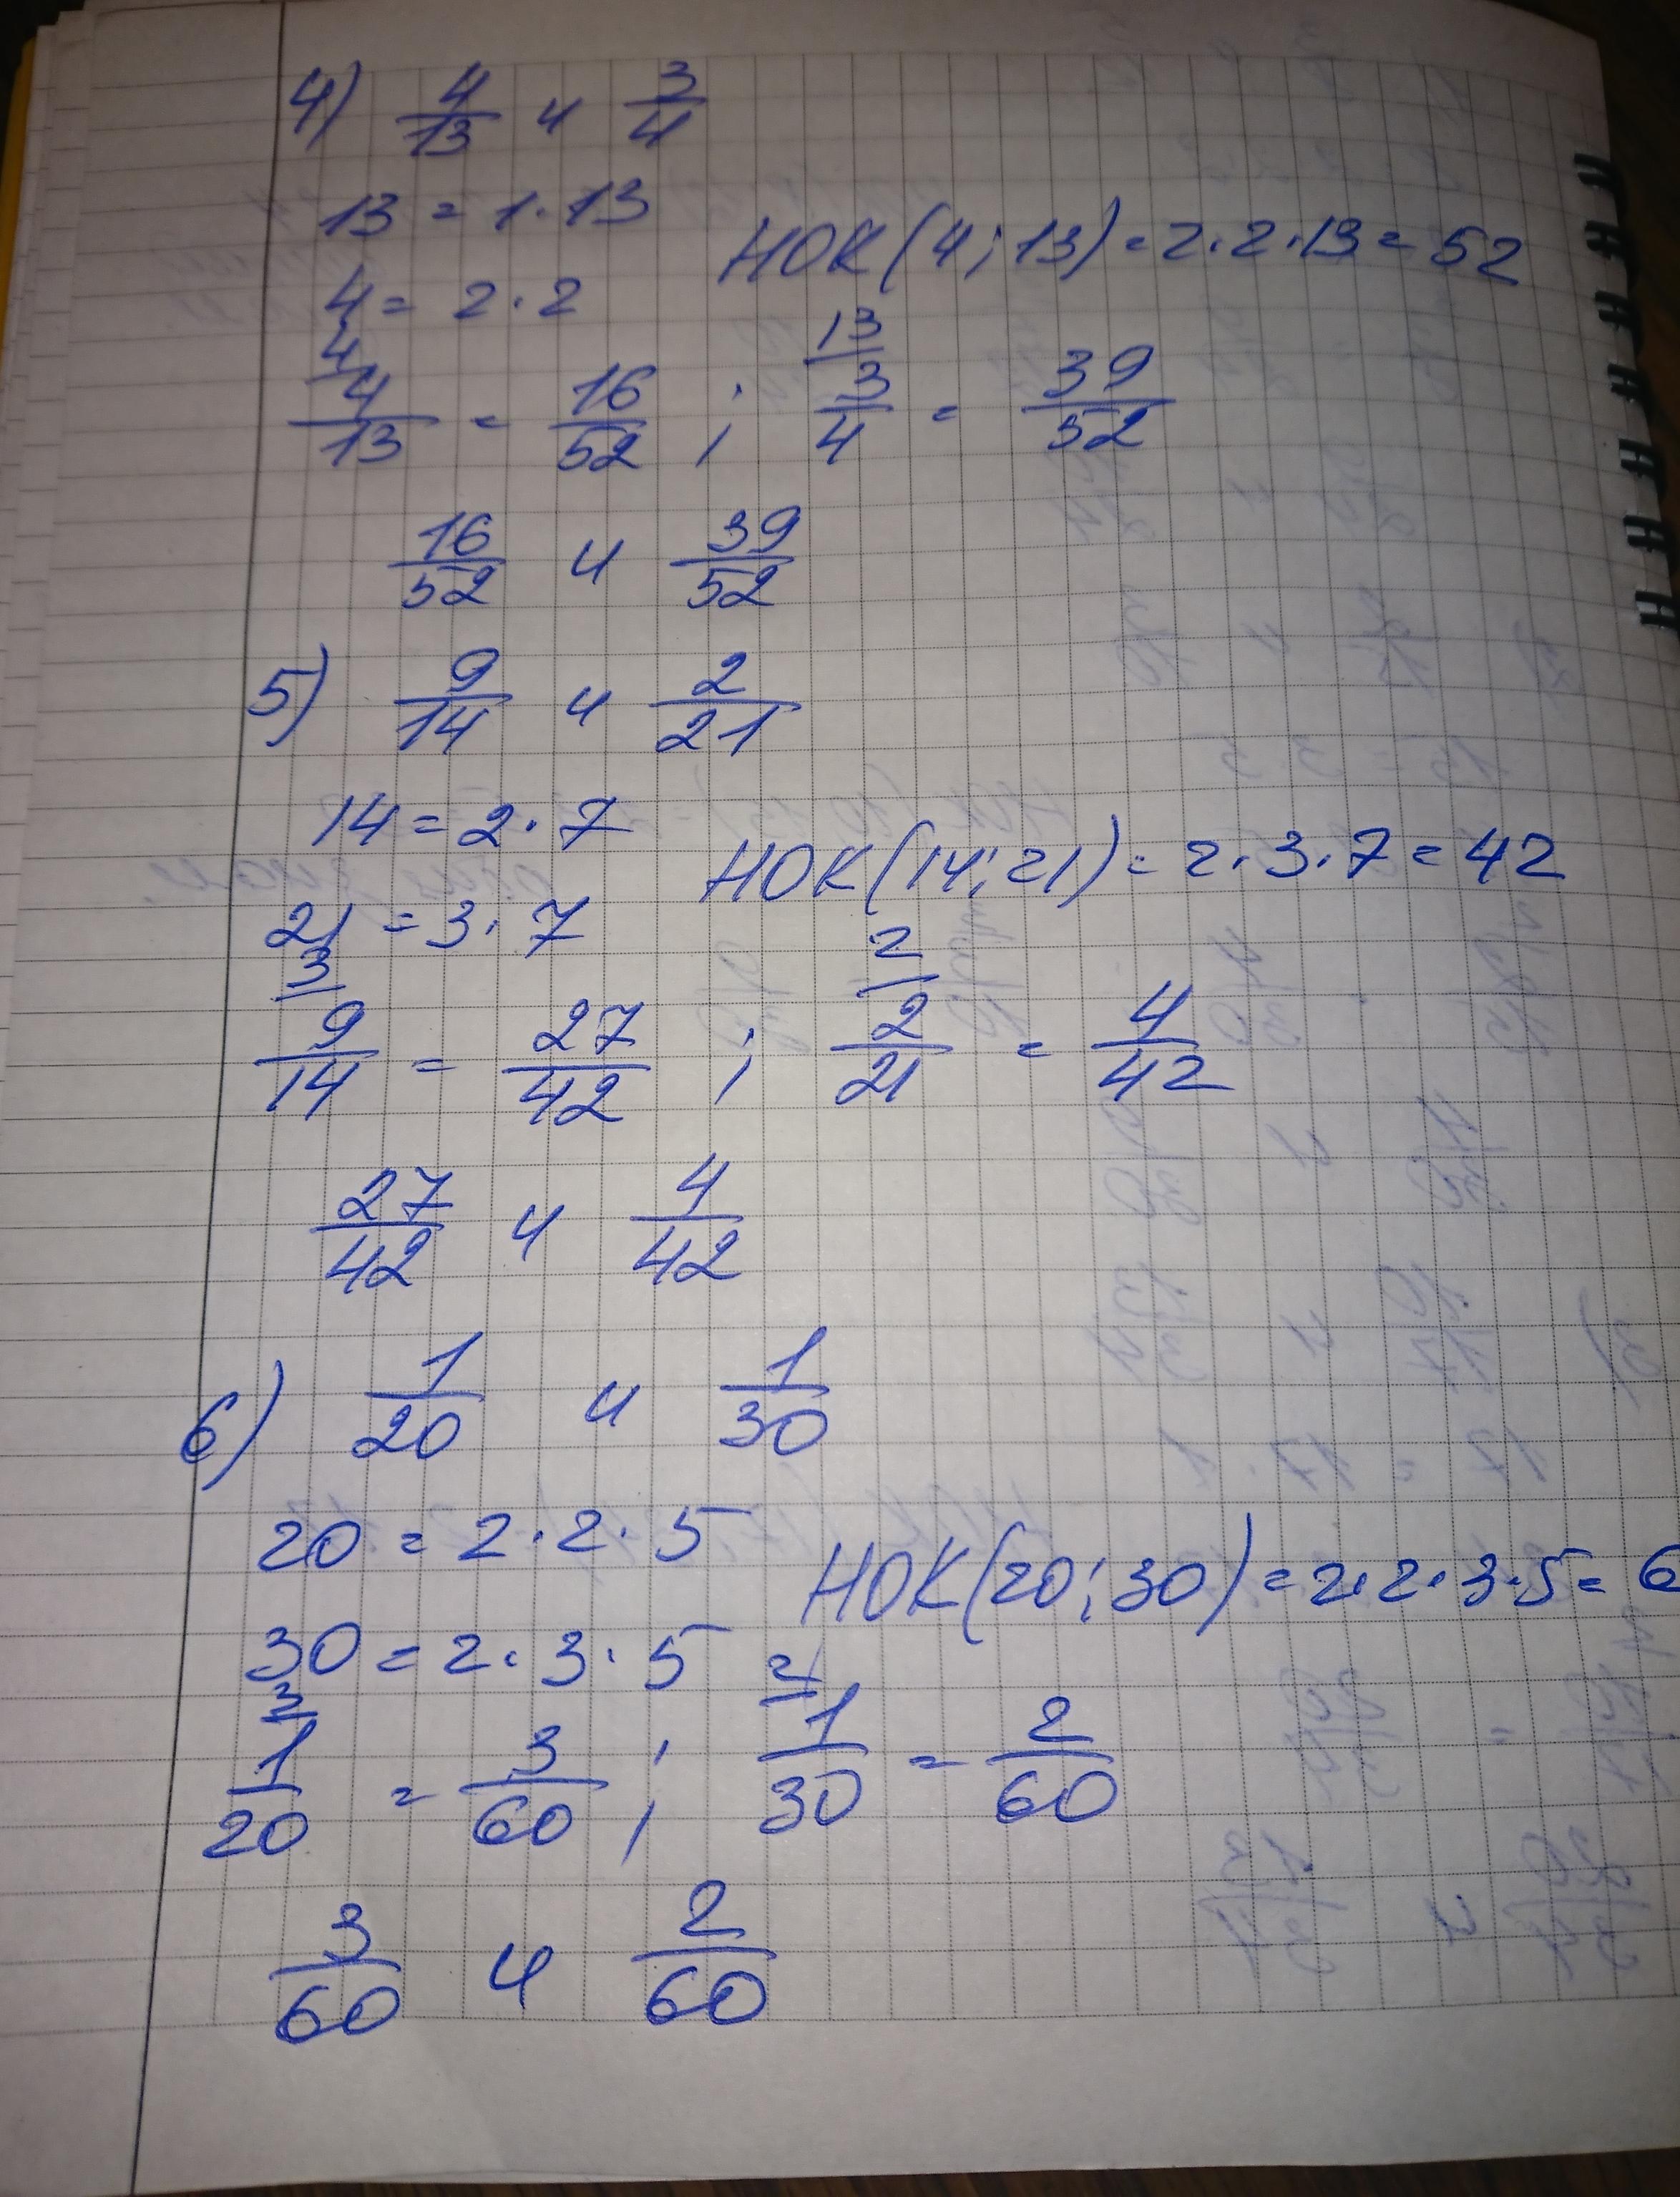 4) 4/13 и 3/4
13 = 1·13
НОК(4;13) = 2·2·13 = 52
4 = 2·2
4 13
4/13 = 16/52 ; 3/4 = 39/52
16/52 и 39/52
5) 9/14 и 2/21
14 = 2·7
НОК(14;21) = 2·3·7 = 42
21 = 3·7
3 2
9/14 = 27/42 ; 2/21 = 4/42
27/42 и 4/42
6) 1/20 и 1/30
20 = 2·2·5
НОК(20;30) = 2·2·3·5 = 6
30 = 2·3·5
3 2
1/20 = 3/60 ; 1/30 = 2/60
3/60 и 2/60